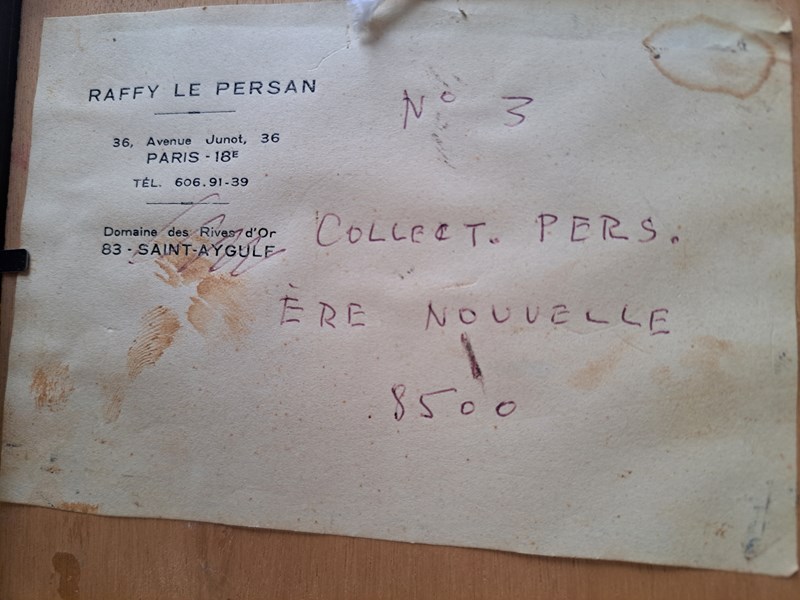 RAFFY LE PERSAN
36, Avenue Junot, 36
PARIS - 18E
TÉL. 606.91-39
Domaine des Rives d'Or
83 - SAINT-AYGULF
No 3
COLLECT. PERS.
ÈRE NOUVELLE
8500